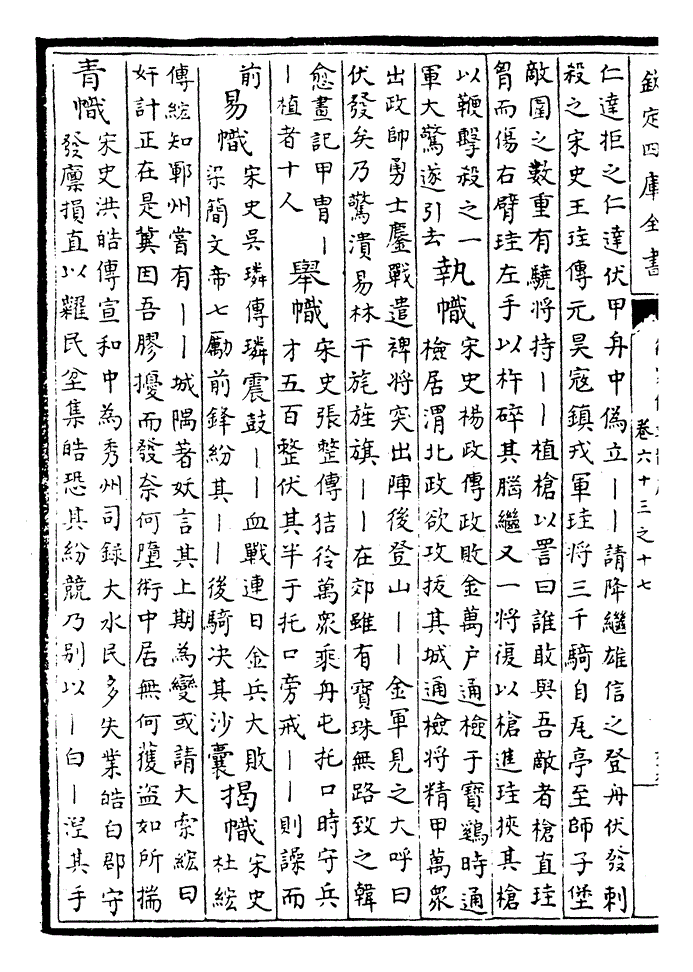 欽定四庫全書
卷六十三之十七
仁達拒之仁達伏甲舟中偽立一一請降繼雄信之登舟伏發刺
殺之宋史王珪傳元昊寇鎮戎軍珪將三千騎自瓦亭至師子堡
敵圍之數重有驍將持一一植槍以詈曰誰敢與吾敵者槍直珪
胷而傷右臂珪左手以杵碎其腦繼又一將復以槍進珪挾其槍
以鞭擊殺之一
軍大驚遂引去
執幟
宋史楊政傳政敗金萬户通檢于寶鷄時通
檢居渭北政欲攻拔其城通檢將精甲萬衆
出政帥勇士鏖戰遣裨將突出陣後登山一一金軍見之大呼曰
伏發矣乃驚潰易林干旄旌旗一一在郊雖有寶珠無路致之韓
愈畫記甲冑一
一植者十人
舉幟
宋史張整傳狤狑萬衆乘舟屯托口時守兵
才五百整伏其半于托口旁戒一一則譟而
前
易幟
宋史吳璘傳璘震鼓一一血戰連日金兵大敗
梁簡文帝七勵前鋒紛其一一後騎决其沙囊
揭幟
宋史
杜紘
傳紘知鄆州嘗有一一城隅著妖言其上期為變或請大索紘曰
奸計正在是冀因吾膠擾而發奈何墮術中居無何獲盗如所揣
青幟
宋史洪皓傳宣和中為秀州司錄大水民多失業皓白郡守
發廪損直以糶民坌集皓恐其紛競乃别以一白一涅其手